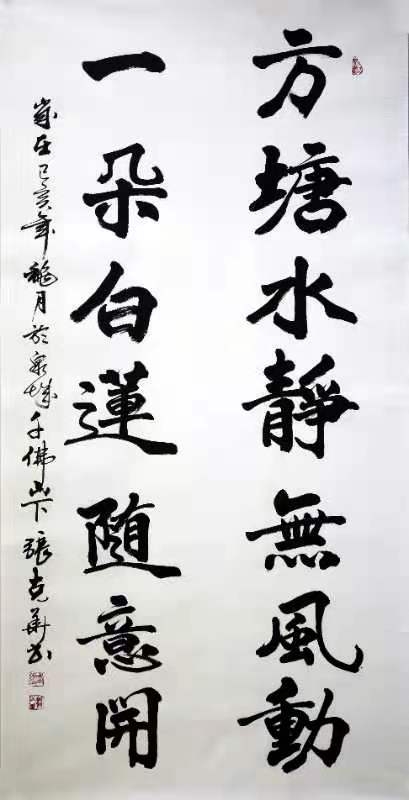 方塘水靜無風動
一朵白蓮隨意開
歲在己亥年龝月於泉城千佛山下張克華書